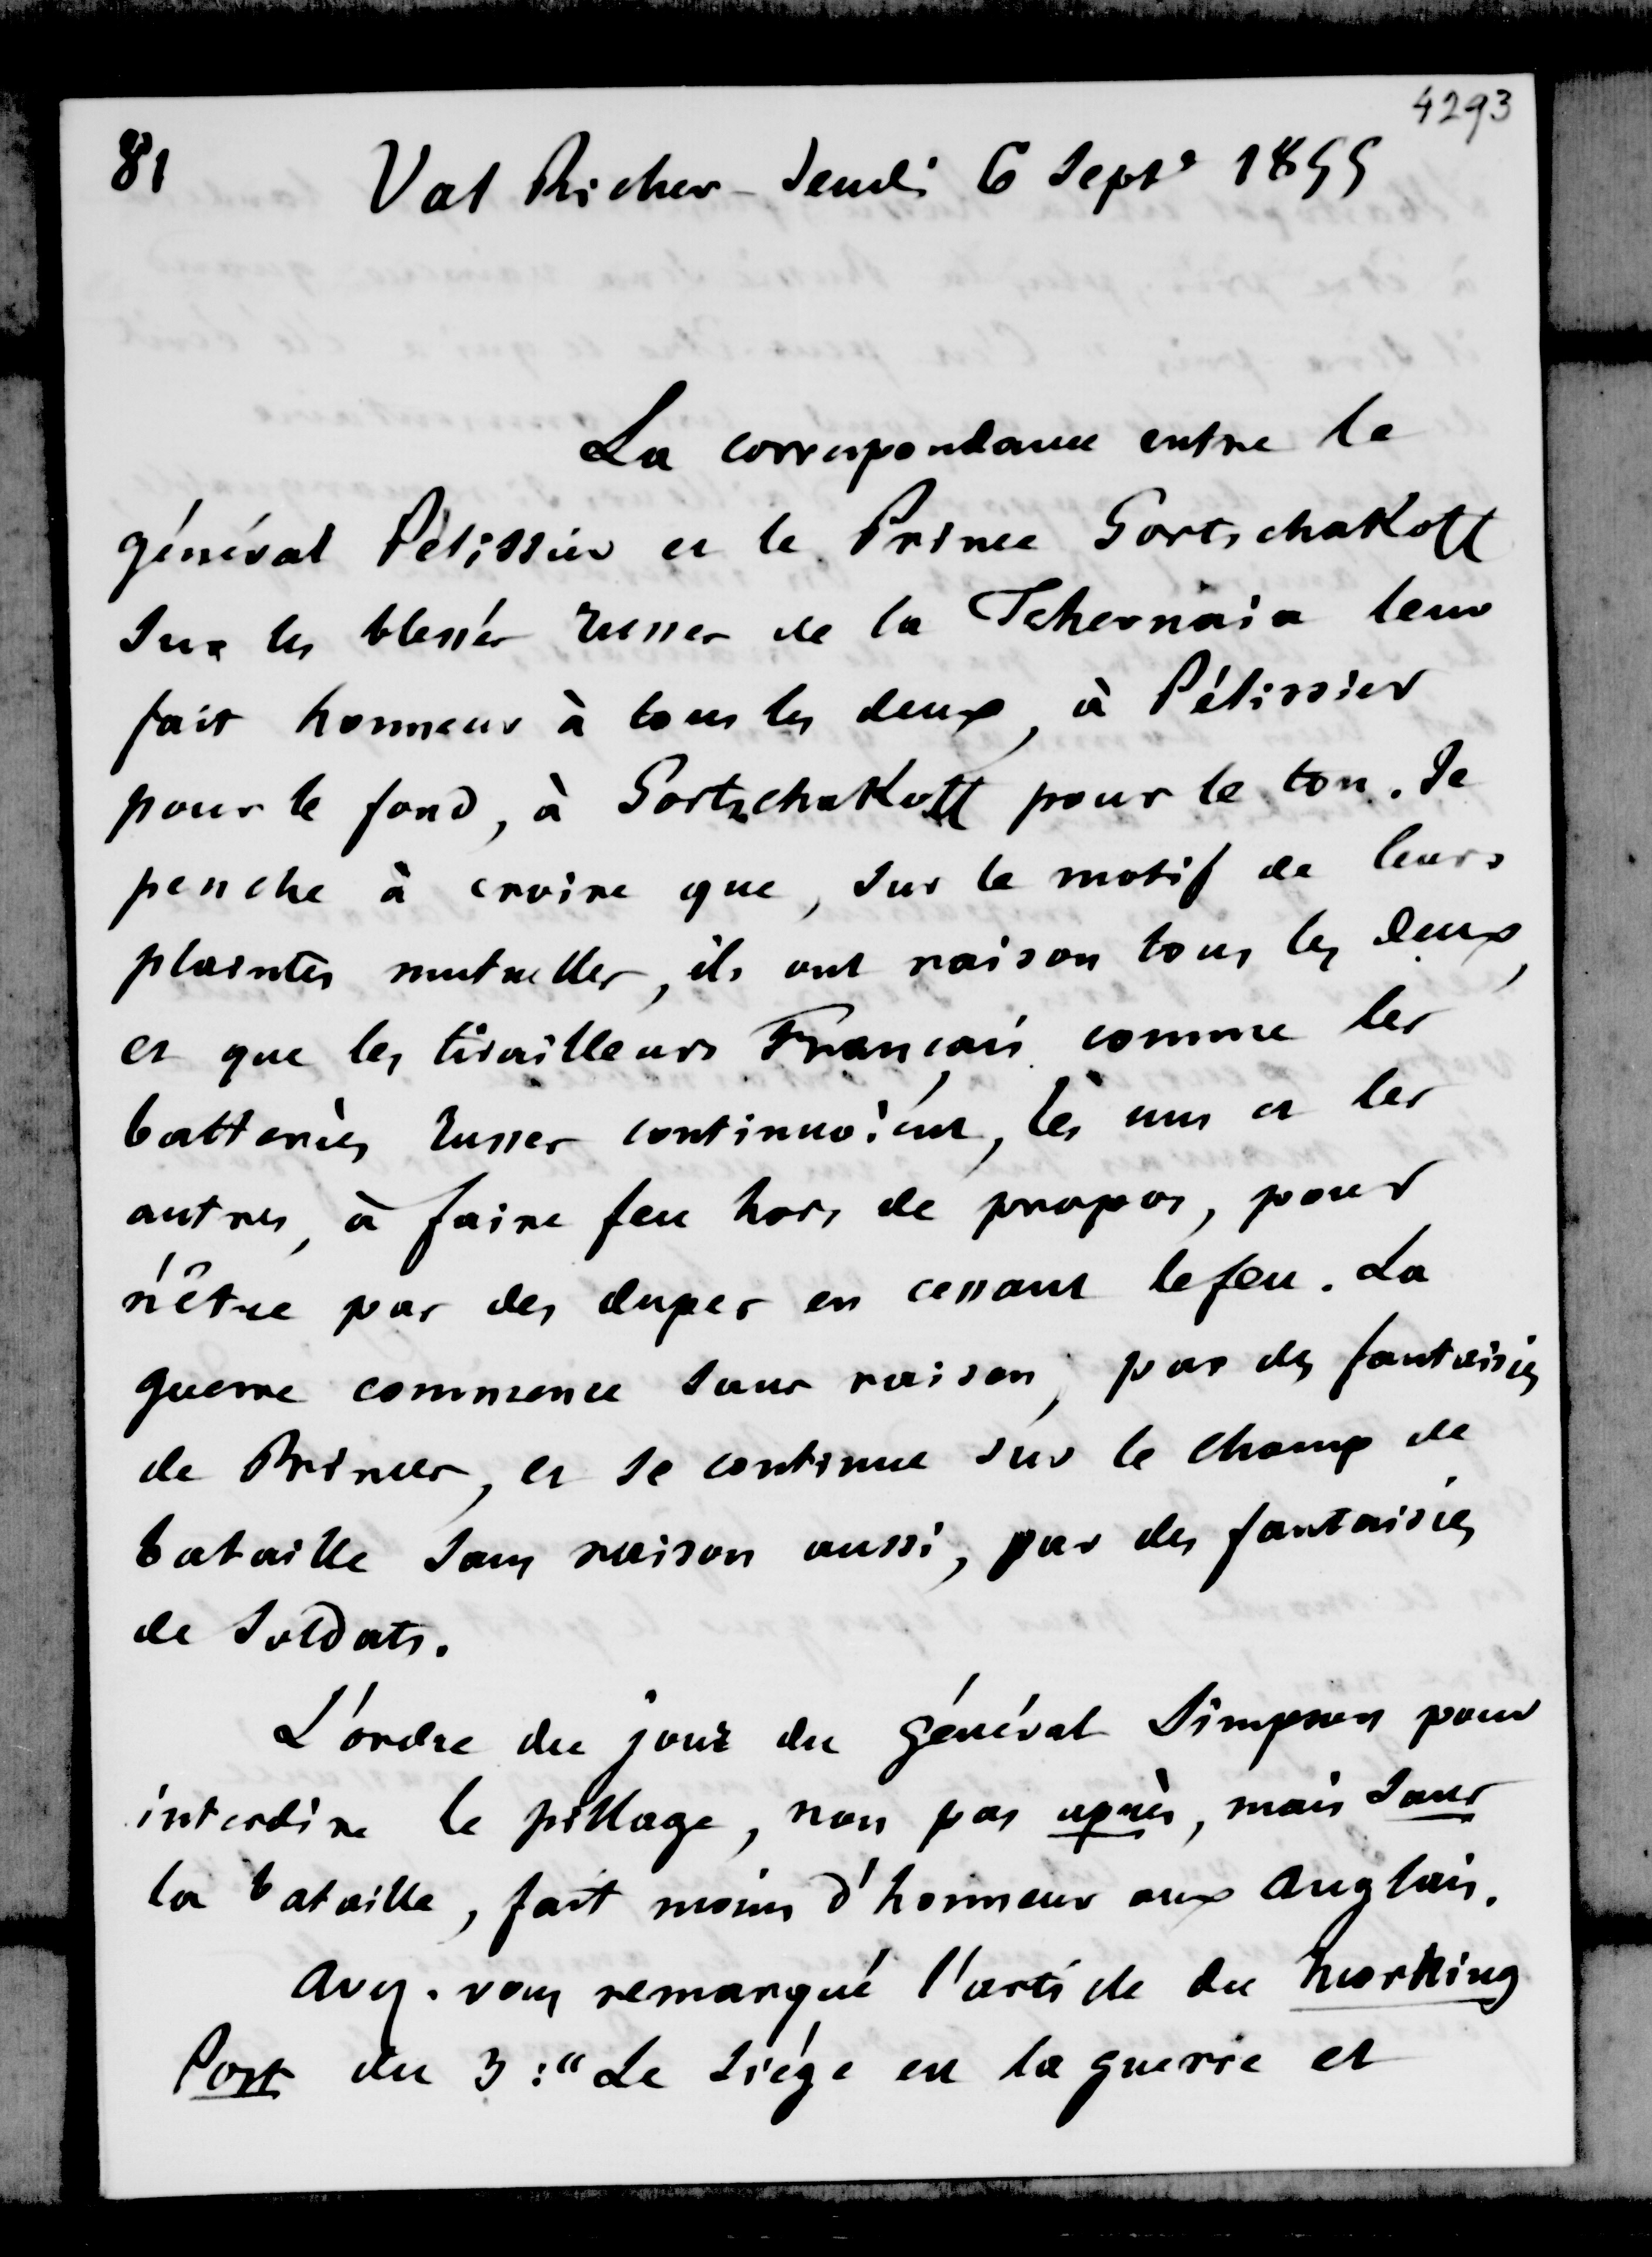 4293
81
Val Richer - Jeudi 6 Septe 1855
La correspondance entre le
général Pélissier et le Prince Gortschakoff
sur les blessés russes de la Tchernaïa leur
fait honneur à tous les deux, à Pélissier
pour le fond, à Gortschakoff pour le ton. Je
penche à croire que, sur le motif de leurs
plaintes mutuelles, ils ont raison tous les deux,
et que les tirailleurs Français comme les
batteries russes continuoient, les uns et les
autres, à faire feu hors de propos, pour
n'être pas des dupes en cessant le feu. La
guerre commence sans raison, par des fantaisies
de Princes, et se continue sur le champ de
bataille sans raison aussi, par des fantaisies
de Soldats.
L'ordre du jour du général Simpson pour
interdire le pillage, non pas après, mais sans
la bataille, fait moins d'honneur aux Anglais.
Avez-vous remarqué l'article du Morning
Post du 3 : "Le siége est la guerre et